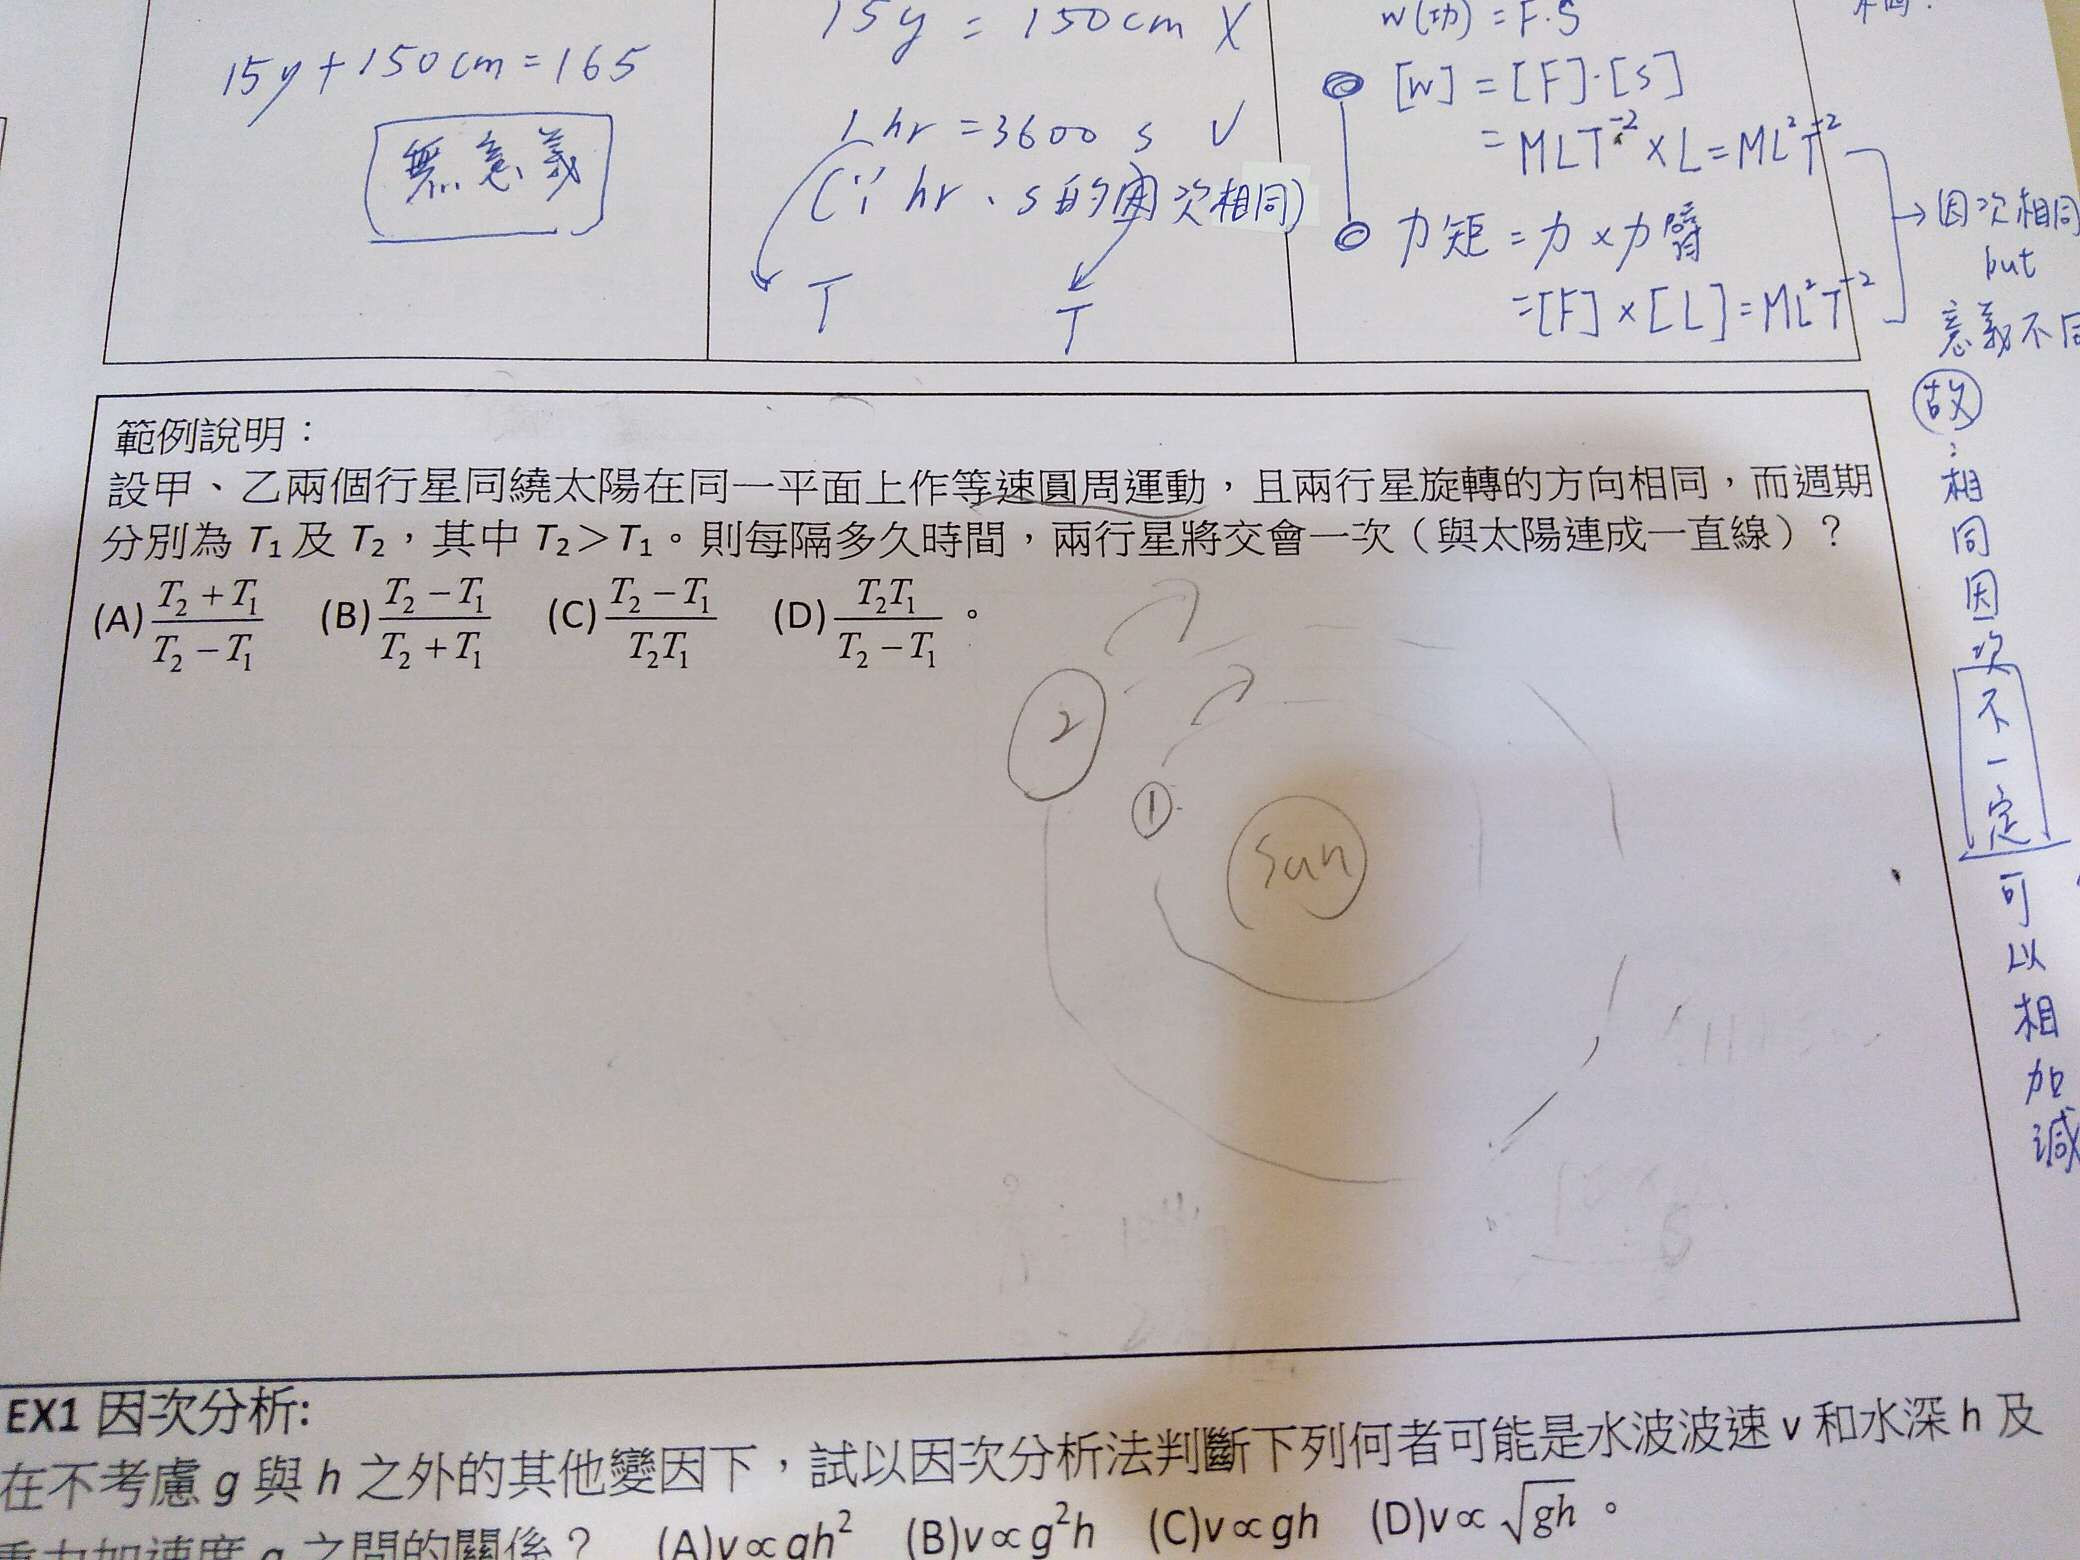 15y+150cm=165
無意義
15y = 150cm X
1hr = 3600 s V
(∵ hr、s的因次相同)
T T
W(功) = F.S
[W] = [F]·[S]
= MLT⁻² × L = ML²T⁻²
力矩 = 力 × 力臂
= [F] × [L] = ML²T⁻²
→ 因次相同
but
意義不同
故:相同因次不一定可以相加減
範例說明：
設甲、乙兩個行星同繞太陽在同一平面上作等速圓周運動，且兩行星旋轉的方向相同，而週期
分別為 T₁ 及 T₂，其中 T₂＞T₁。則每隔多久時間，兩行星將交會一次（與太陽連成一直線）？
(A) (T₂+T₁)/(T₂−T₁) (B) (T₂−T₁)/(T₂+T₁) (C) (T₂−T₁)/(T₂T₁) (D) (T₂T₁)/(T₂−T₁)。
2
1
Sun
EX1 因次分析:
在不考慮 g 與 h 之外的其他變因下，試以因次分析法判斷下列何者可能是水波波速 v 和水深 h 及
重力加速度 g 之間的關係？ (A)v∝gh² (B)v∝g²h (C)v∝gh (D)v∝√gh。